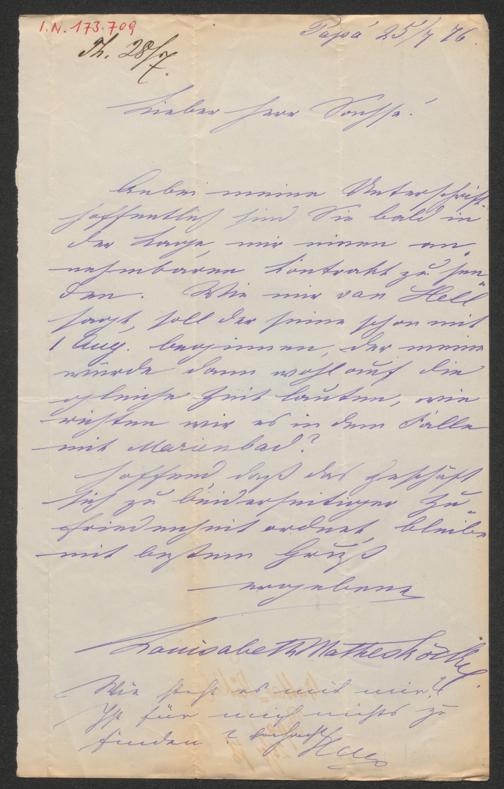 I.N. 173.709
Th. 28/7.
Papa 25/7 76.
Lieber Herr
Anbei meine Unterschrift
hoffentlich sind Sie bald in
der Lage, mir einen an„
nehmbaren Contrakt zu sen„
den. Wie mir van Hell
sagt, soll der seine schon mit
1 Aug. beginnen, der meine
würde dann wohl auf die
gleiche Zeit lauten, wie
richten wir es in dem Falle
mit Marienbad?
Hoffend, daß das Geschäft
sich zu beiderseitiger Zu„
friedenheit ordnet, bleibe
mit bestem Gruß
ergebene
Louisabeth Mathes Röckel.
Wie steht es mit mir?
Ist für mich nichts zu
finden?